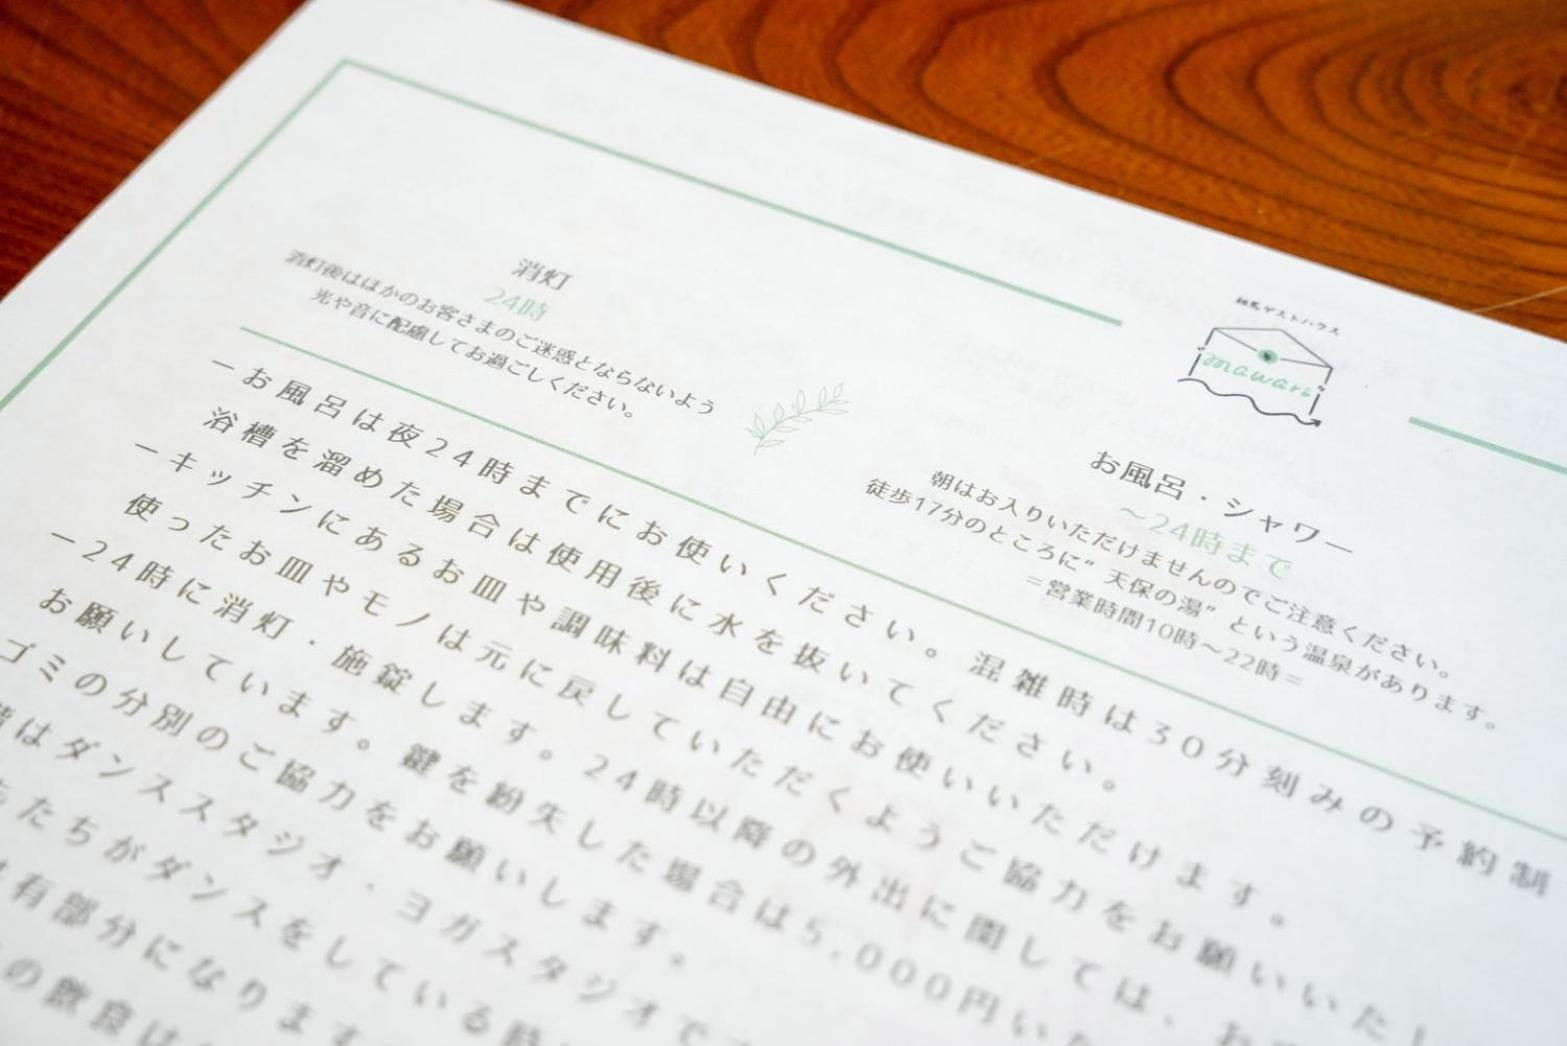 相馬ゲストハウス
mawari
消灯
24時
消灯後はほかのお客さまのご迷惑とならないよう
光や音に配慮してお過ごしください。
お風呂・シャワー
～24時まで
朝はお入りいただけませんのでご注意ください。
徒歩17分のところに”天保の湯”という温泉があります。
＝営業時間10時～22時＝
ーお風呂は夜24時までにお使いください。混雑時は30分刻みの予約制
浴槽を溜めた場合は使用後に水を抜いてください。
ーキッチンにあるお皿や調味料は自由にお使いいただけます。
使ったお皿やモノは元に戻していただくようご協力をお願いいた
ー24時に消灯・施錠します。24時以降の外出に関しては、
お願いしています。鍵を紛失した場合は5,000円い
ゴミの分別のご協力をお願いします。
はダンススタジオ・ヨガスタジオで
たちがダンスをしている
有部分になります
の飲食は